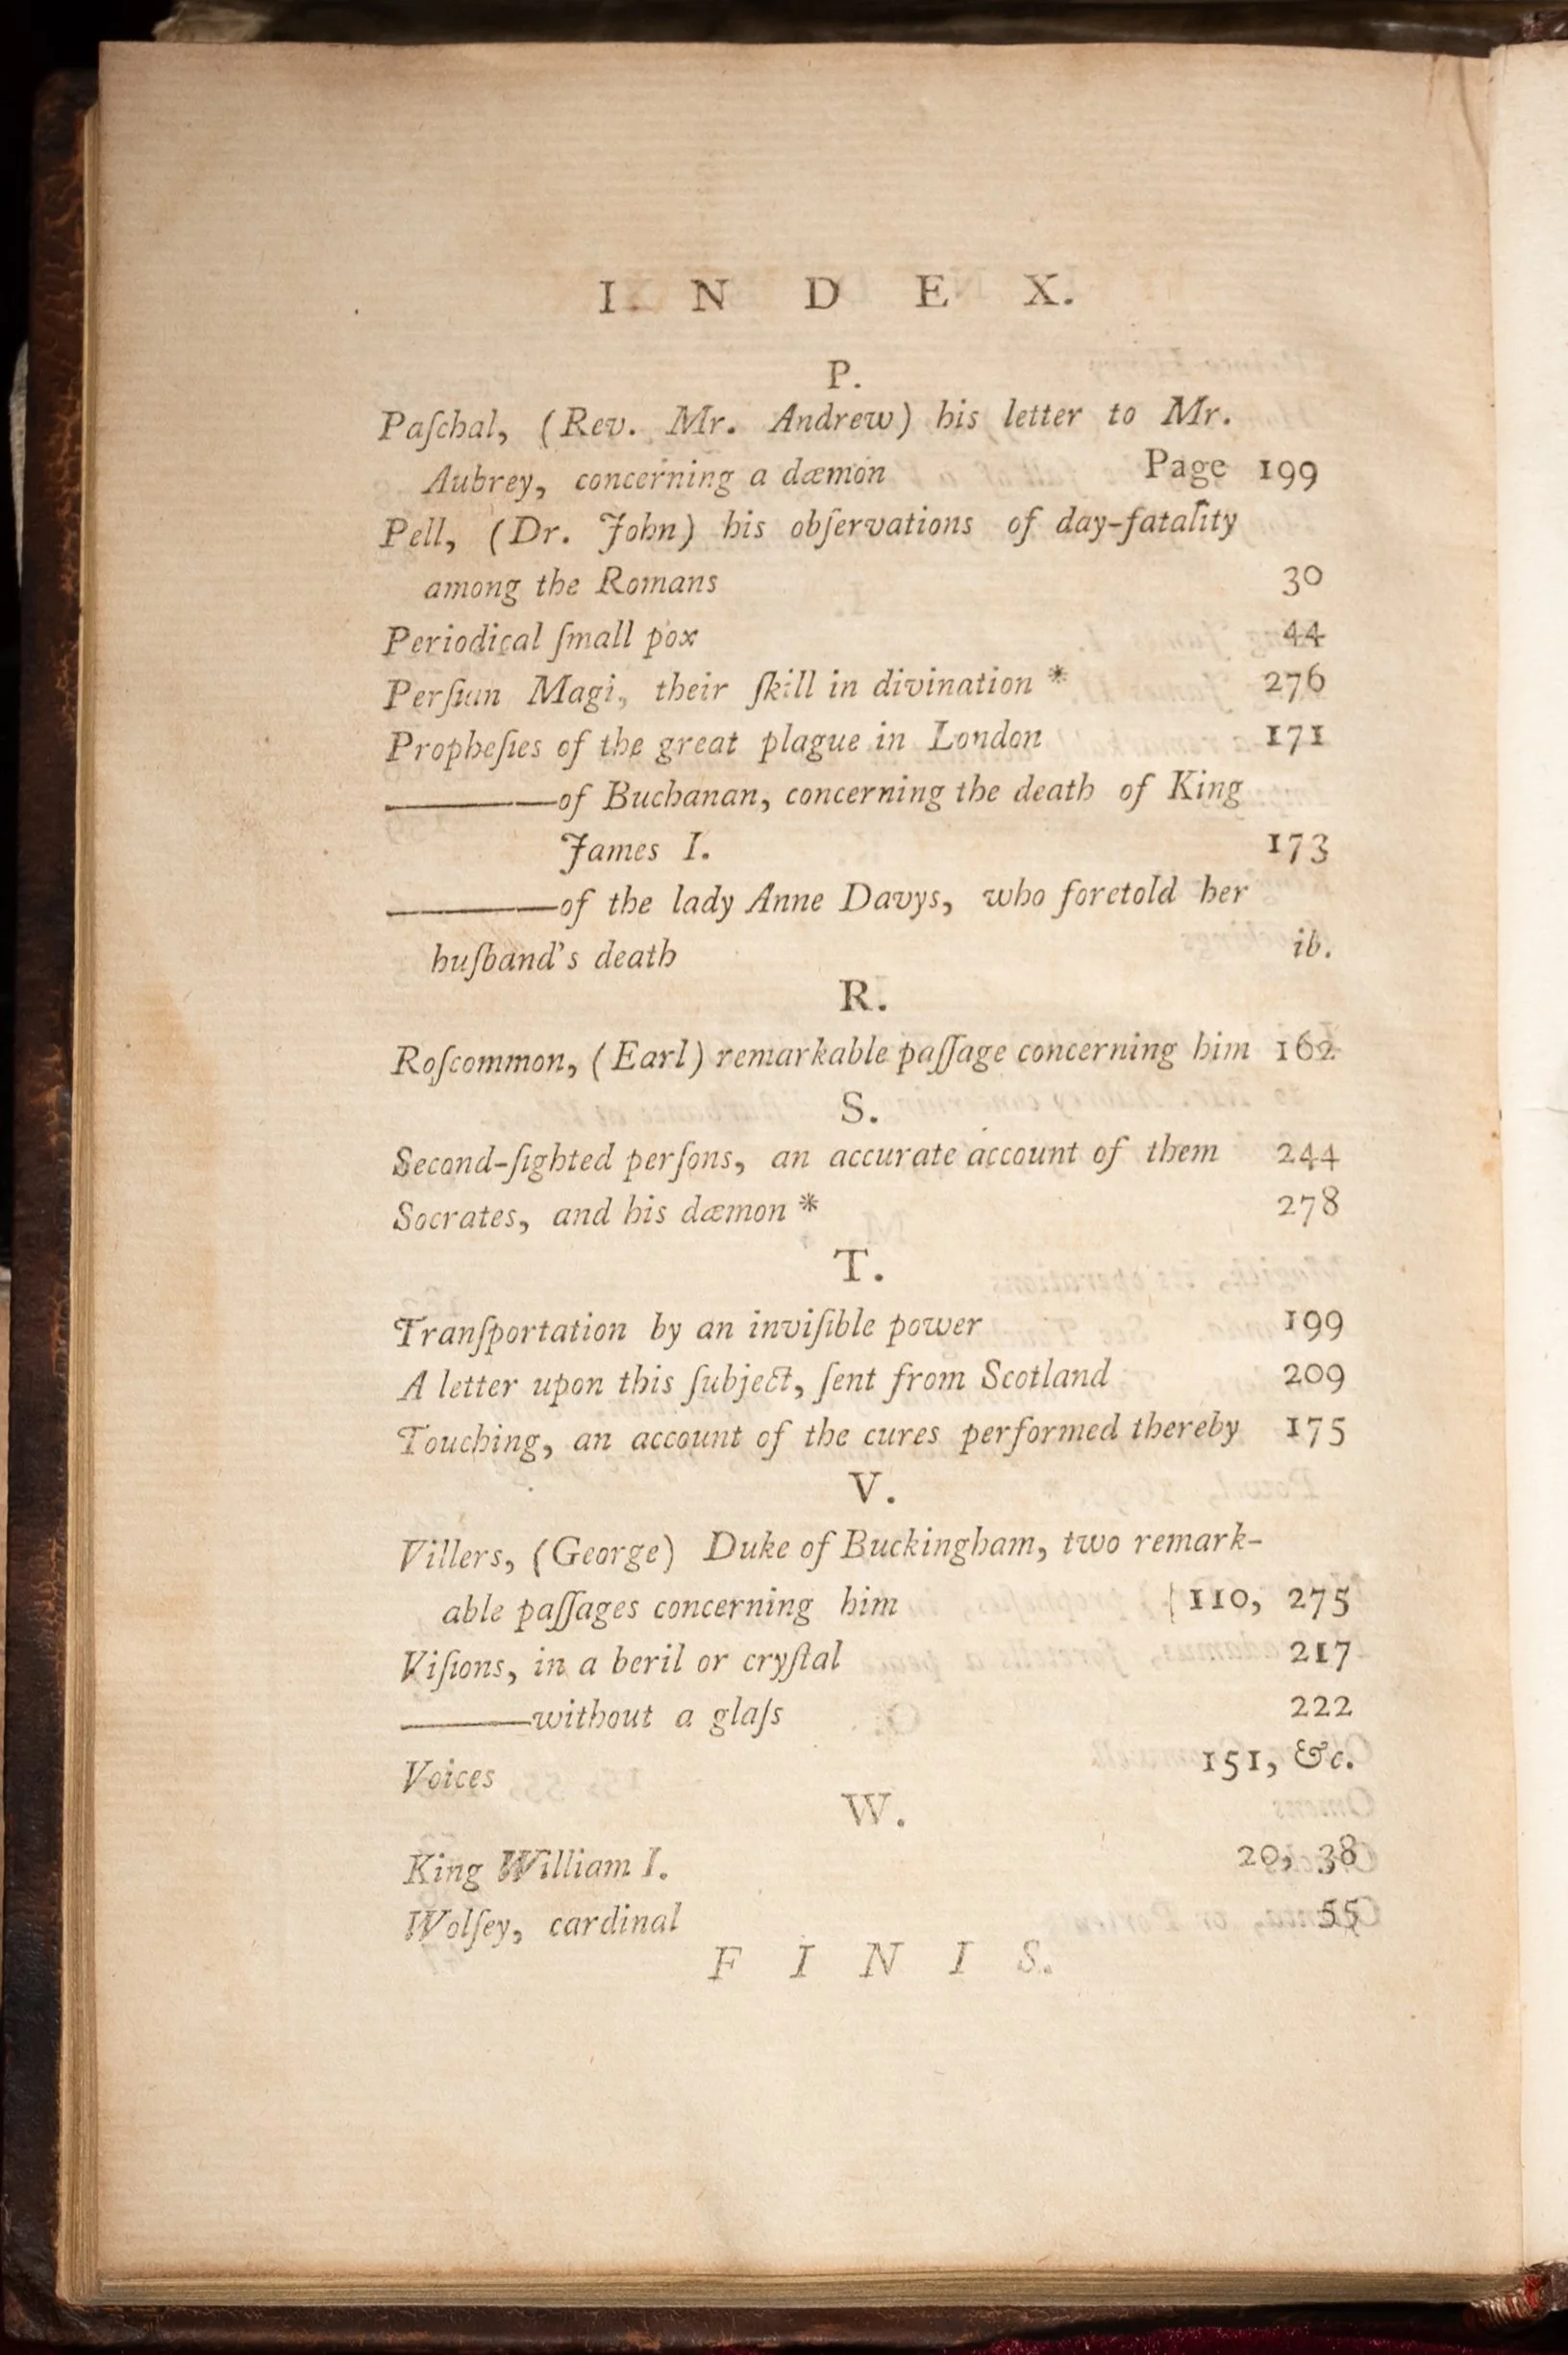 I N D E X.
P.
Paſchal, (Rev. Mr. Andrew) his letter to Mr.
Aubrey, concerning a dæmon Page 199
Pell, (Dr. John) his obſervations of day-fatality
among the Romans 30
Periodical ſmall pox 44
Perſian Magi, their ſkill in divination * 276
Propheſies of the great plague in London 171
———of Buchanan, concerning the death of King
James I. 173
———of the lady Anne Davys, who foretold her
huſband's death ib.
R.
Roſcommon, (Earl) remarkable paſſage concerning him 162
S.
Second-ſighted perſons, an accurate account of them 244
Socrates, and his dæmon * 278
T.
Tranſportation by an inviſible power 199
A letter upon this ſubject, ſent from Scotland 209
Touching, an account of the cures performed thereby 175
V.
Villers, (George) Duke of Buckingham, two remark-
able paſſages concerning him 110, 275
Viſions, in a beril or cryſtal 217
———without a glaſs 222
Voices 151, &c.
W.
King William I. 20, 38
Wolſey, cardinal 55
F I N I S.